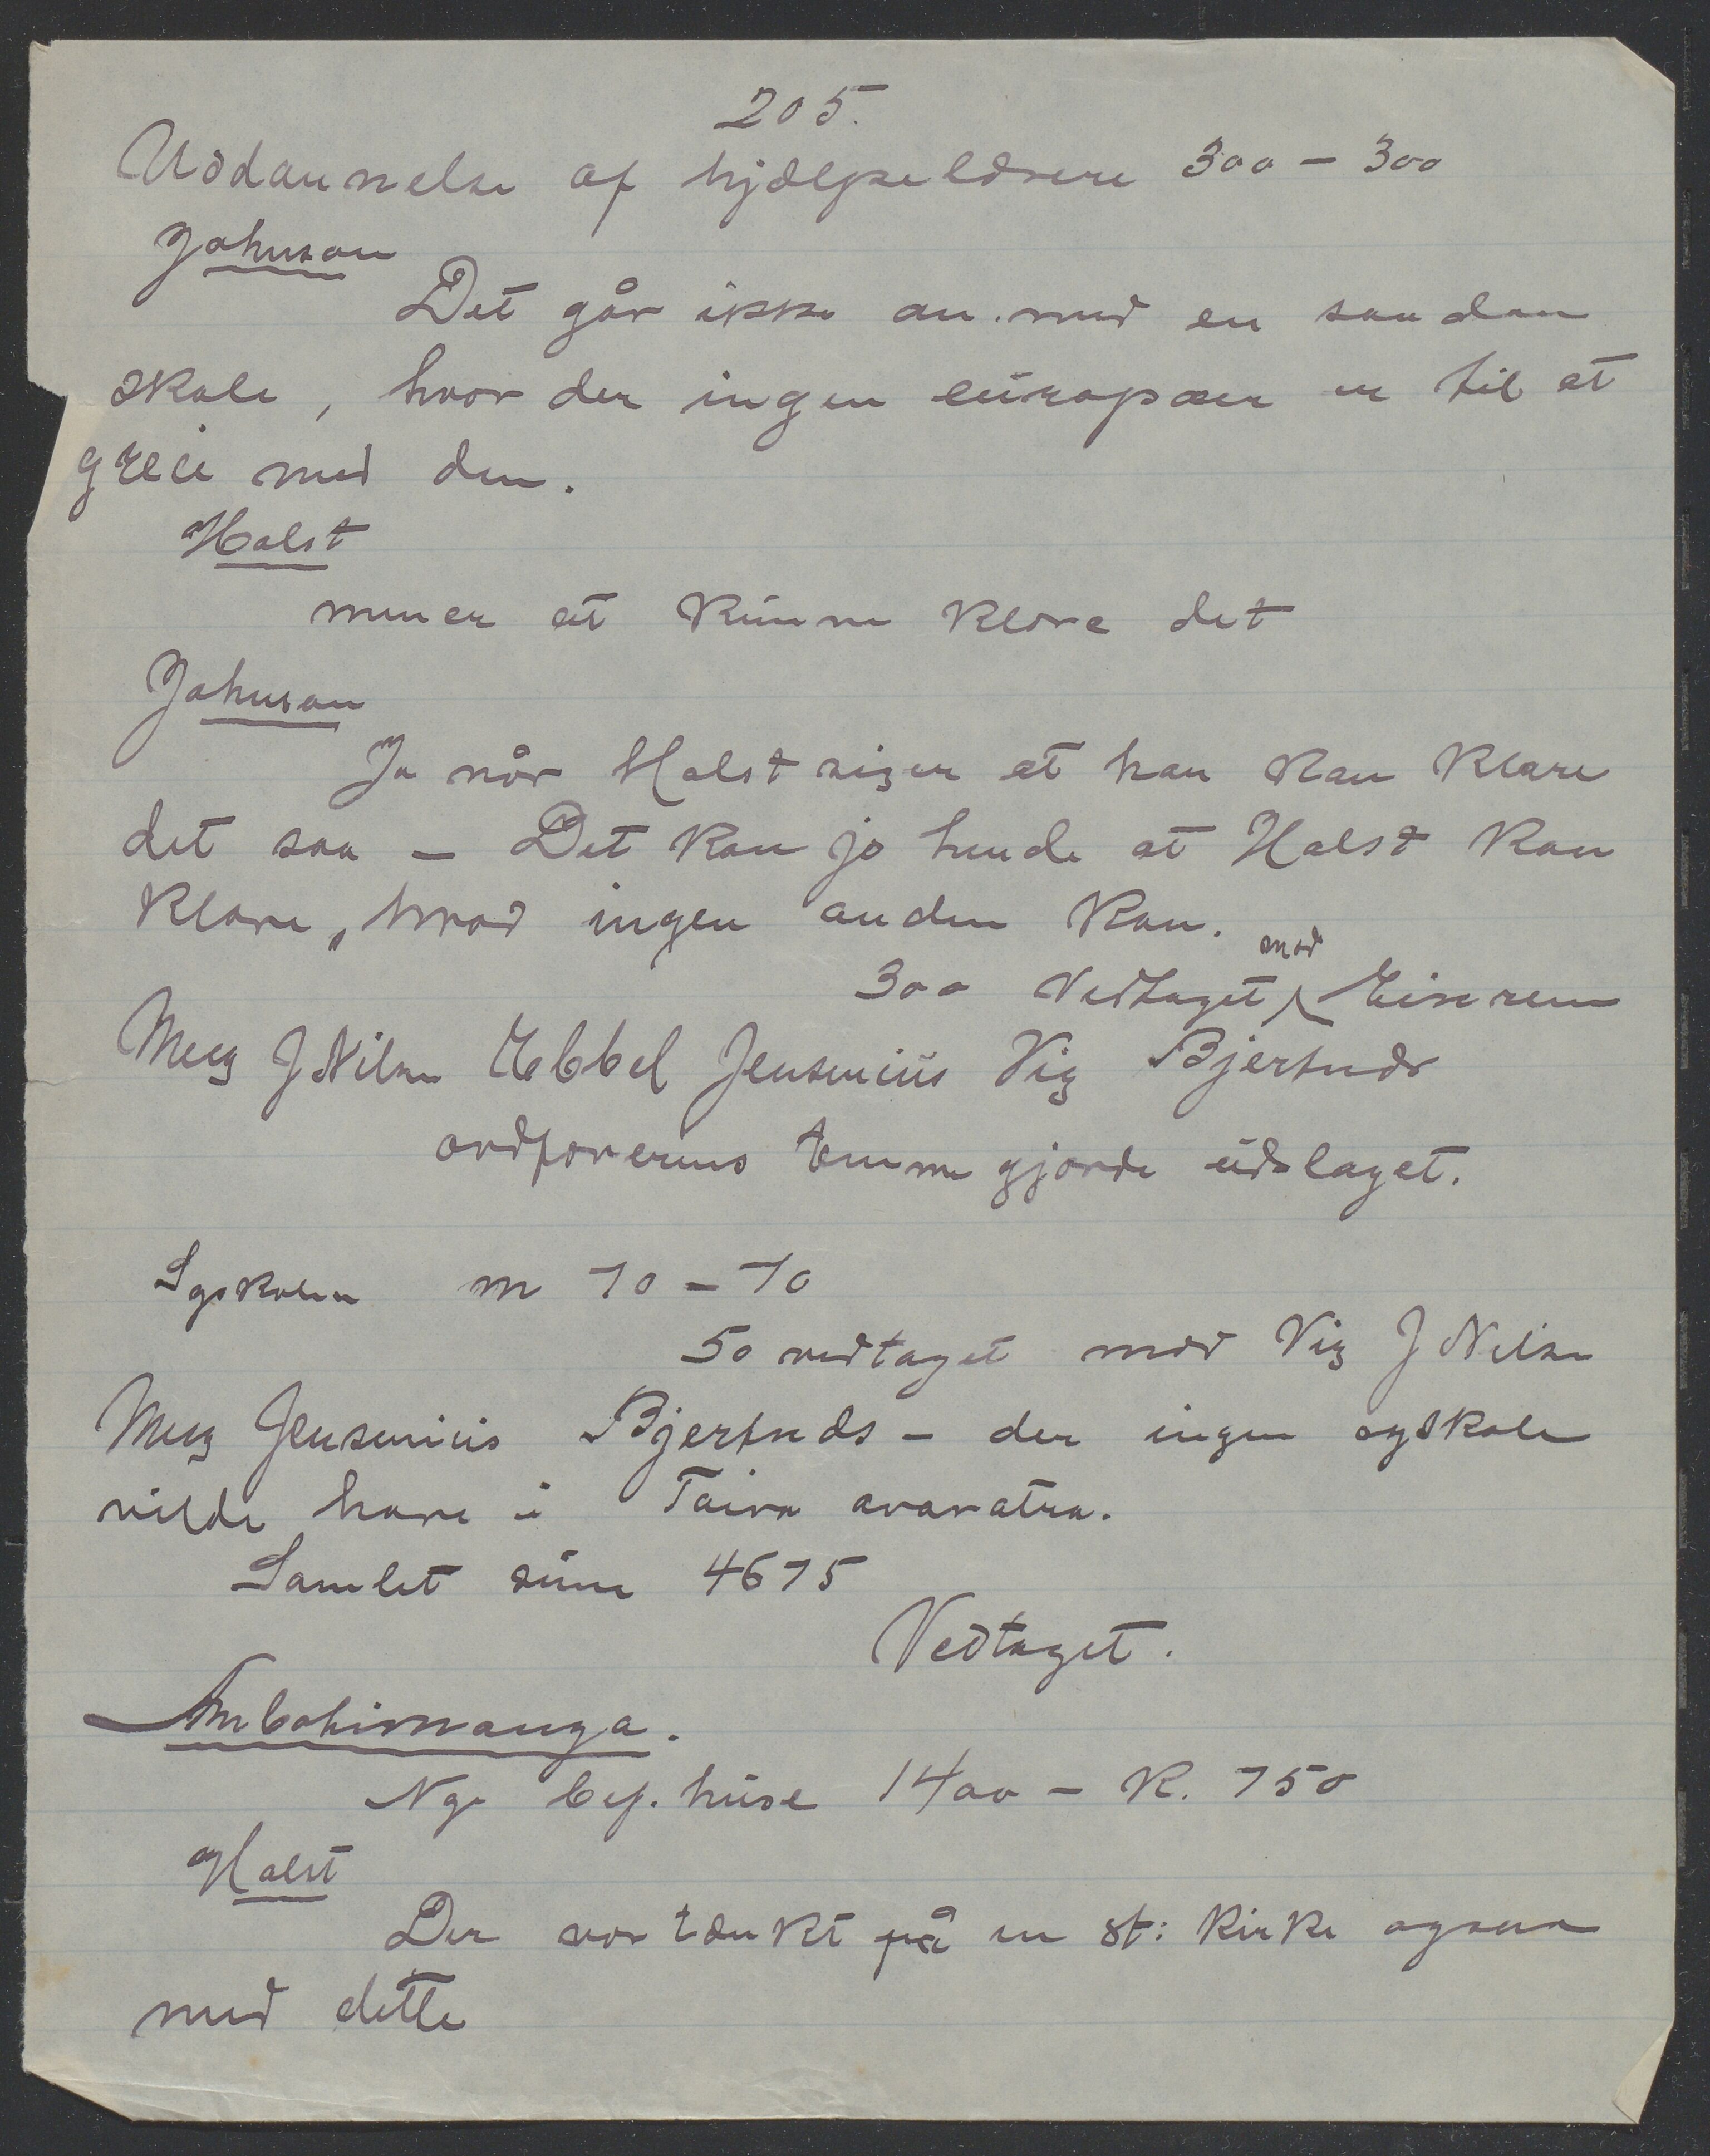 205.
Uddannelse af hjælpelærere 300 – 300
Johnson
Det går ikke an med en saadan
skole, hvor der ingen europæer er til at
greie med den.
Holst
mener at kunne klare det
Johnson
Ja når Holst siger at han kan klare
det saa – Det kan jo hende at Holst kan
klare, hvad ingen anden kan.
300 Vedtaget mod Einrem
Meeg J Nilsen Ebbel Jensenius Vig Bjertnæs
ordførerens temme gjorde udslaget.
Syskolen m 70 – 70
50 vedtaget mod Vig J Nilsen
Meeg Jensenius Bjertnæs – der ingen syskole
vilde have i avaratra.
Samlet sum 4675
Vedtaget.
Ambohimanga.
Nye bef. huse 1400 – K. 750
Holst
Der var tænkt på en st: kirke ogsaa
med dette